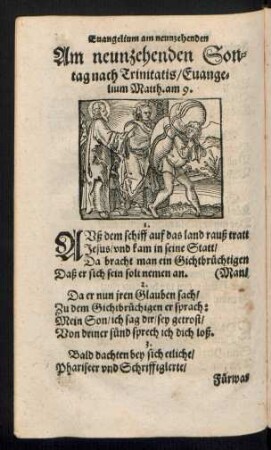 Euangelium am neunzehenden
Am neunzehenden Son-
tag nach Trinitatis/Euange-
lium Matth. am 9.
1.
AVß dem schiff auf das land rauß tratt
Jesus/vnd kam in seine Statt/
Da bracht man ein Gichtbrüchtigen
Daß er sich sein solt nemen an. (Man/
2.
Da er nun jren Glauben sach/
Zu dem Gichtbrüchtigen er sprach:
Mein Son/ich sag dir/sey getrost/
Von deiner sünd sprech ich dich loß.
3.
Bald dachten bey sich etliche/
Phariseer vnd Schrifftglerte/
Fürwas